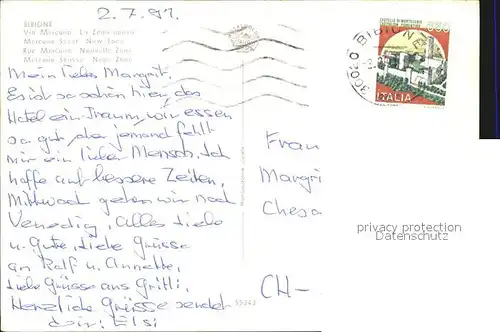 2.7.91.
BIBIONE
Via Mercurio La Zona nuova
Mercure Street New Zone
Rue Mercure Nouvelle Zone
Merkure Strasse Neue Zone
Mein liebes Margrit,
Es ist so schön hier, das
Hotel ein Traum, wir essen
so gut, aber jemand fehlt
mir ein lieber Mensch, Ich
hoffe auf bessere Zeiten,
Mittwoch gehen wir nach
Venedig, alles Liebe
u. Gute, liebe Grüsse
an Ralf u. Annette,
liebe Grüsse ans Gritli,
Herzliche Grüsse sendet
dir: Elsi
30020 BIBIONE
650
ITALIA
Frau
Margri
Chesa
CH-
privacy protection
Datenschutz